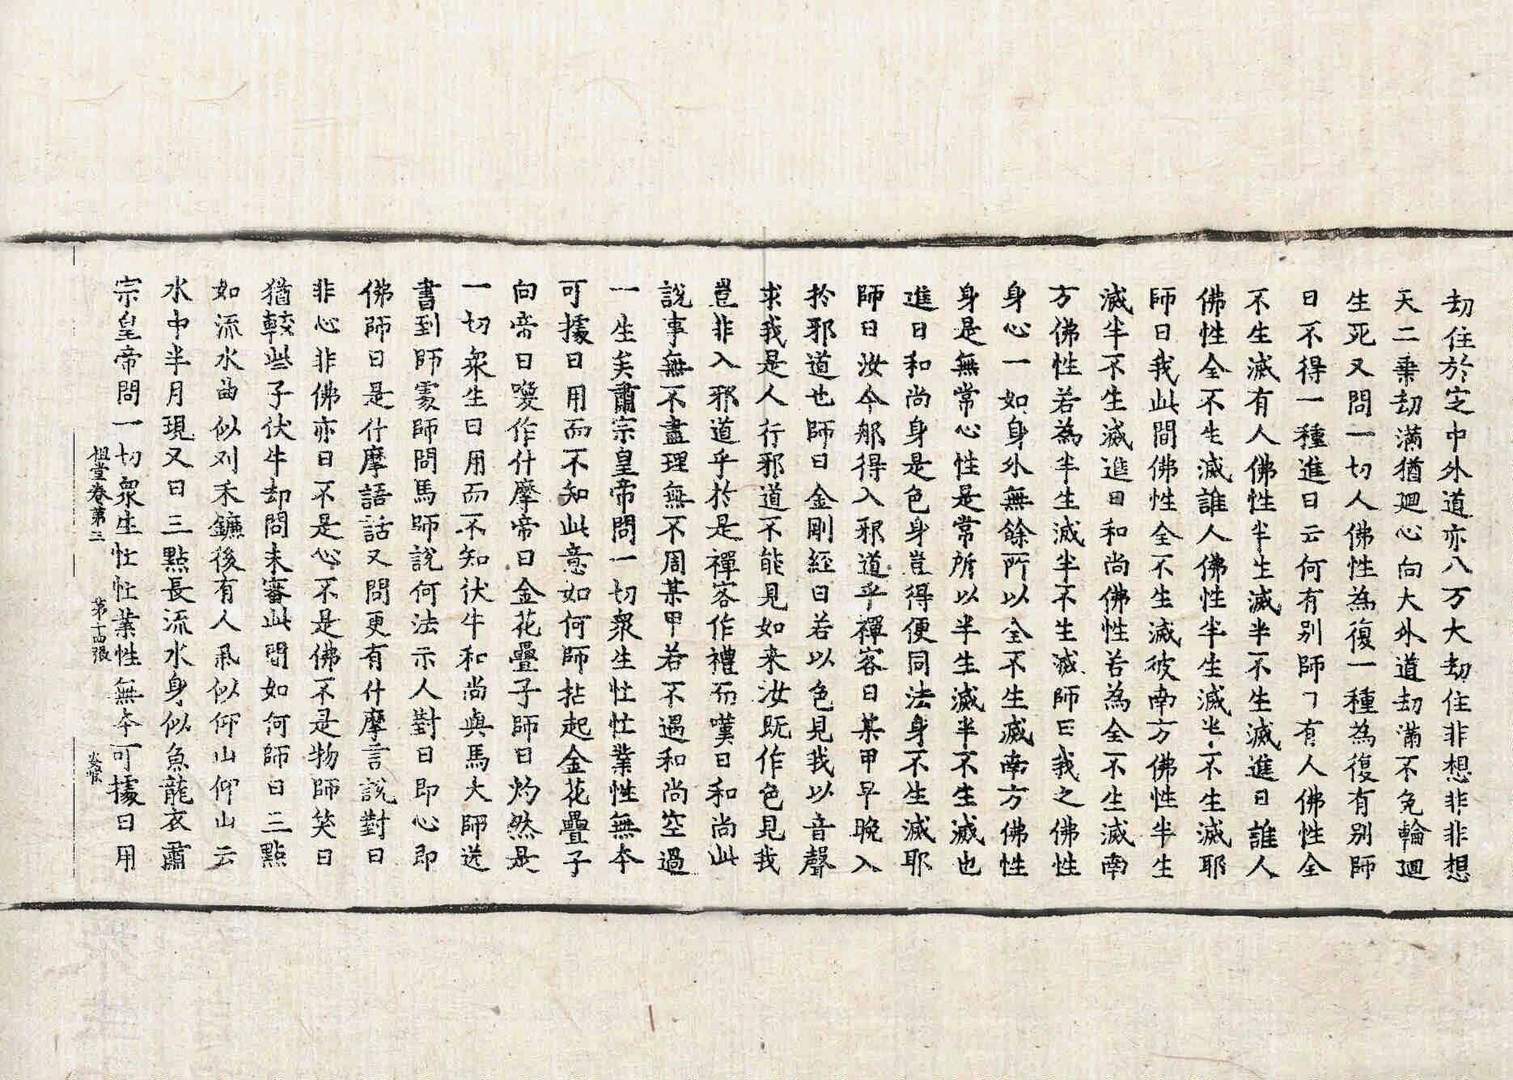 劫住於定中外道亦八万大劫住非想非非想
天二乗劫滿猶廻心向大外道劫滿不免輪廻
生死又問一切人佛性為復一種為復有别師
曰不得一種進曰云何有别師曰有人佛性全
不生滅有人佛性半生滅半不生滅進曰誰人
佛性全不生滅誰人佛性半生滅半不生滅耶
師曰我此間佛性全不生滅彼南方佛性半生
滅半不生滅進曰和尚佛性若為全不生滅南
方佛性若為半生滅半不生滅師曰我之佛性
身心一如身外無餘所以全不生滅南方佛性
身是無常心性是常所以半生滅半不生滅也
進曰和尚身是色身豈得便同法身不生滅耶
師曰汝今那得入邪道乎禪客曰某甲早晚入
扵邪道也師曰金剛經曰若以色見我以音聲
求我是人行邪道不能見如来汝既作色見我
豈非入邪道乎扵是禪客作禮而嘆曰和尚此
說事無不盡理無不周某甲若不遇和尚空過
一生矣肅宗皇帝問一切衆生忙忙業性無夲
可據日用而不知此意如何師拈起金花疊子
向帝曰喚作什摩帝曰金花疊子師曰灼然是
一切衆生日用而不知伏牛和尚與馬大師送
書到師處師問馬師說何法示人對曰即心即
佛師曰是什摩語話又問更有什摩言說對曰
非心非佛亦曰不是心不是佛不是物師笑曰
猶較些子伏牛却問未審此間如何師曰三點
如流水曲似刈禾鐮後有人㪯似仰山仰山云
水中半月現又曰三點長流水身似魚龍衣肅
宗皇帝問一切衆生忙忙業性無夲可據日用
祖堂卷第三 第十四張